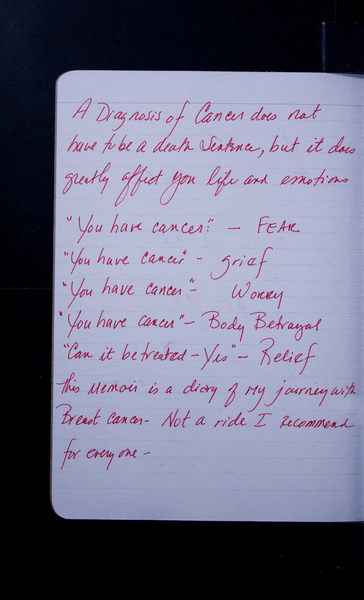 A Diagnosis of Cancer does not
have to be a death Sentence, but it does
greatly affect you life and emotions
"You have cancer." — FEAR
"You have cancer" - grief
"You have cancer" - WORRY
"You have cancer" - Body Betrayal
"Can it be treated - Yes" - Relief
This Memoir is a diary of My journey with
Breast Cancer - Not a ride I Recommend
for everyone -